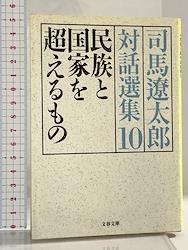 司馬遼太郎
対話選集10
民族と
国家を
超えるもの
文春文庫